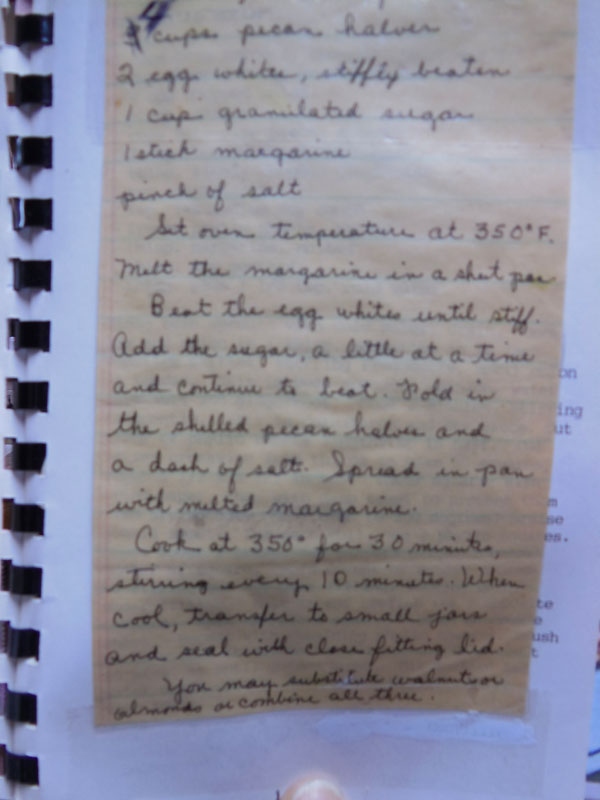 4 cups pecan halves
2 egg whites, stiffly beaten
1 cup granulated sugar
1 stick margarine
pinch of salt
Set oven temperature at 350° F.
Melt the margarine in a sheet pan
Beat the egg whites until stiff.
Add the sugar, a little at a time
and continue to beat. Fold in
the shelled pecan halves and
a dash of salt. Spread in pan
with melted margarine.
Cook at 350° for 30 minutes,
stirring every 10 minutes. When
cool, transfer to small jars
and seal with close fitting lid.
You may substitute walnuts or
almonds or combine all three.
on
ing
ut
m
se
es.
te
e
ush
t